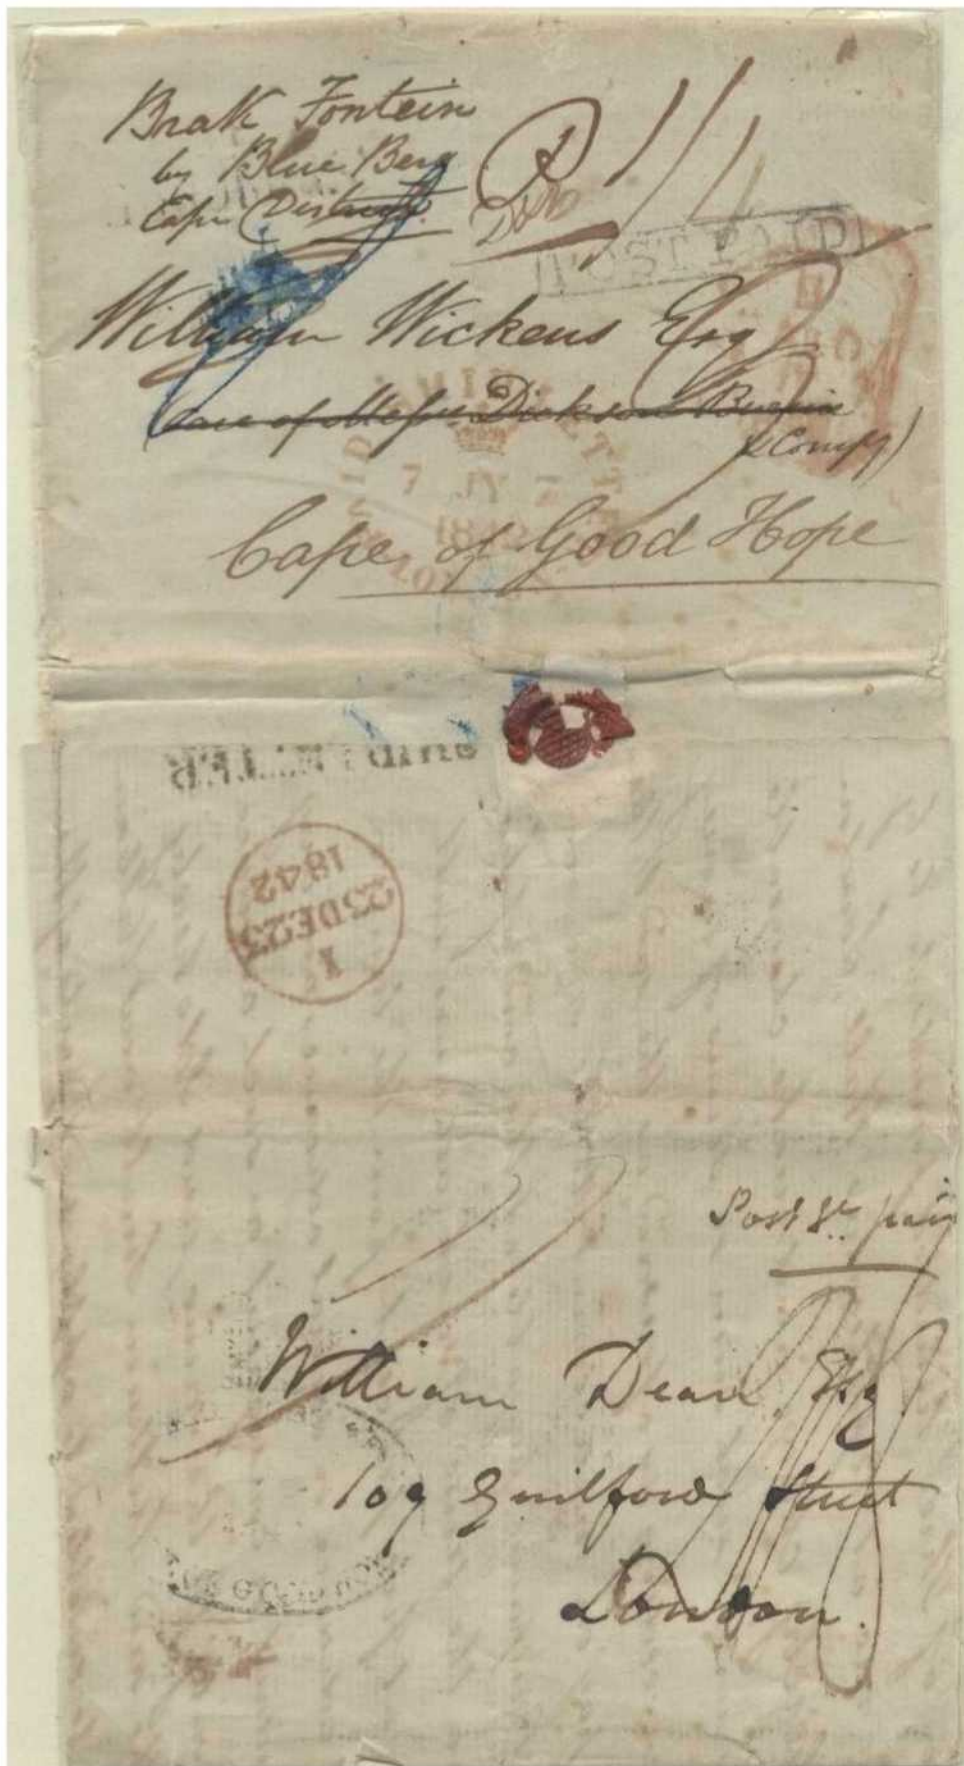 Brak Fontein
by Blue Berg
Cape District
1/4
POST PAID
William Wickens Esq
Care of Messrs Dickson Burnie
& Compy)
PAID
7 JY 7
1842
Cape of Good Hope
SHIP LETTER
I
23DE23
1842
Post Ge. paid
William Dean Esq
109 Guilford Street
London.
GOOD HOPE